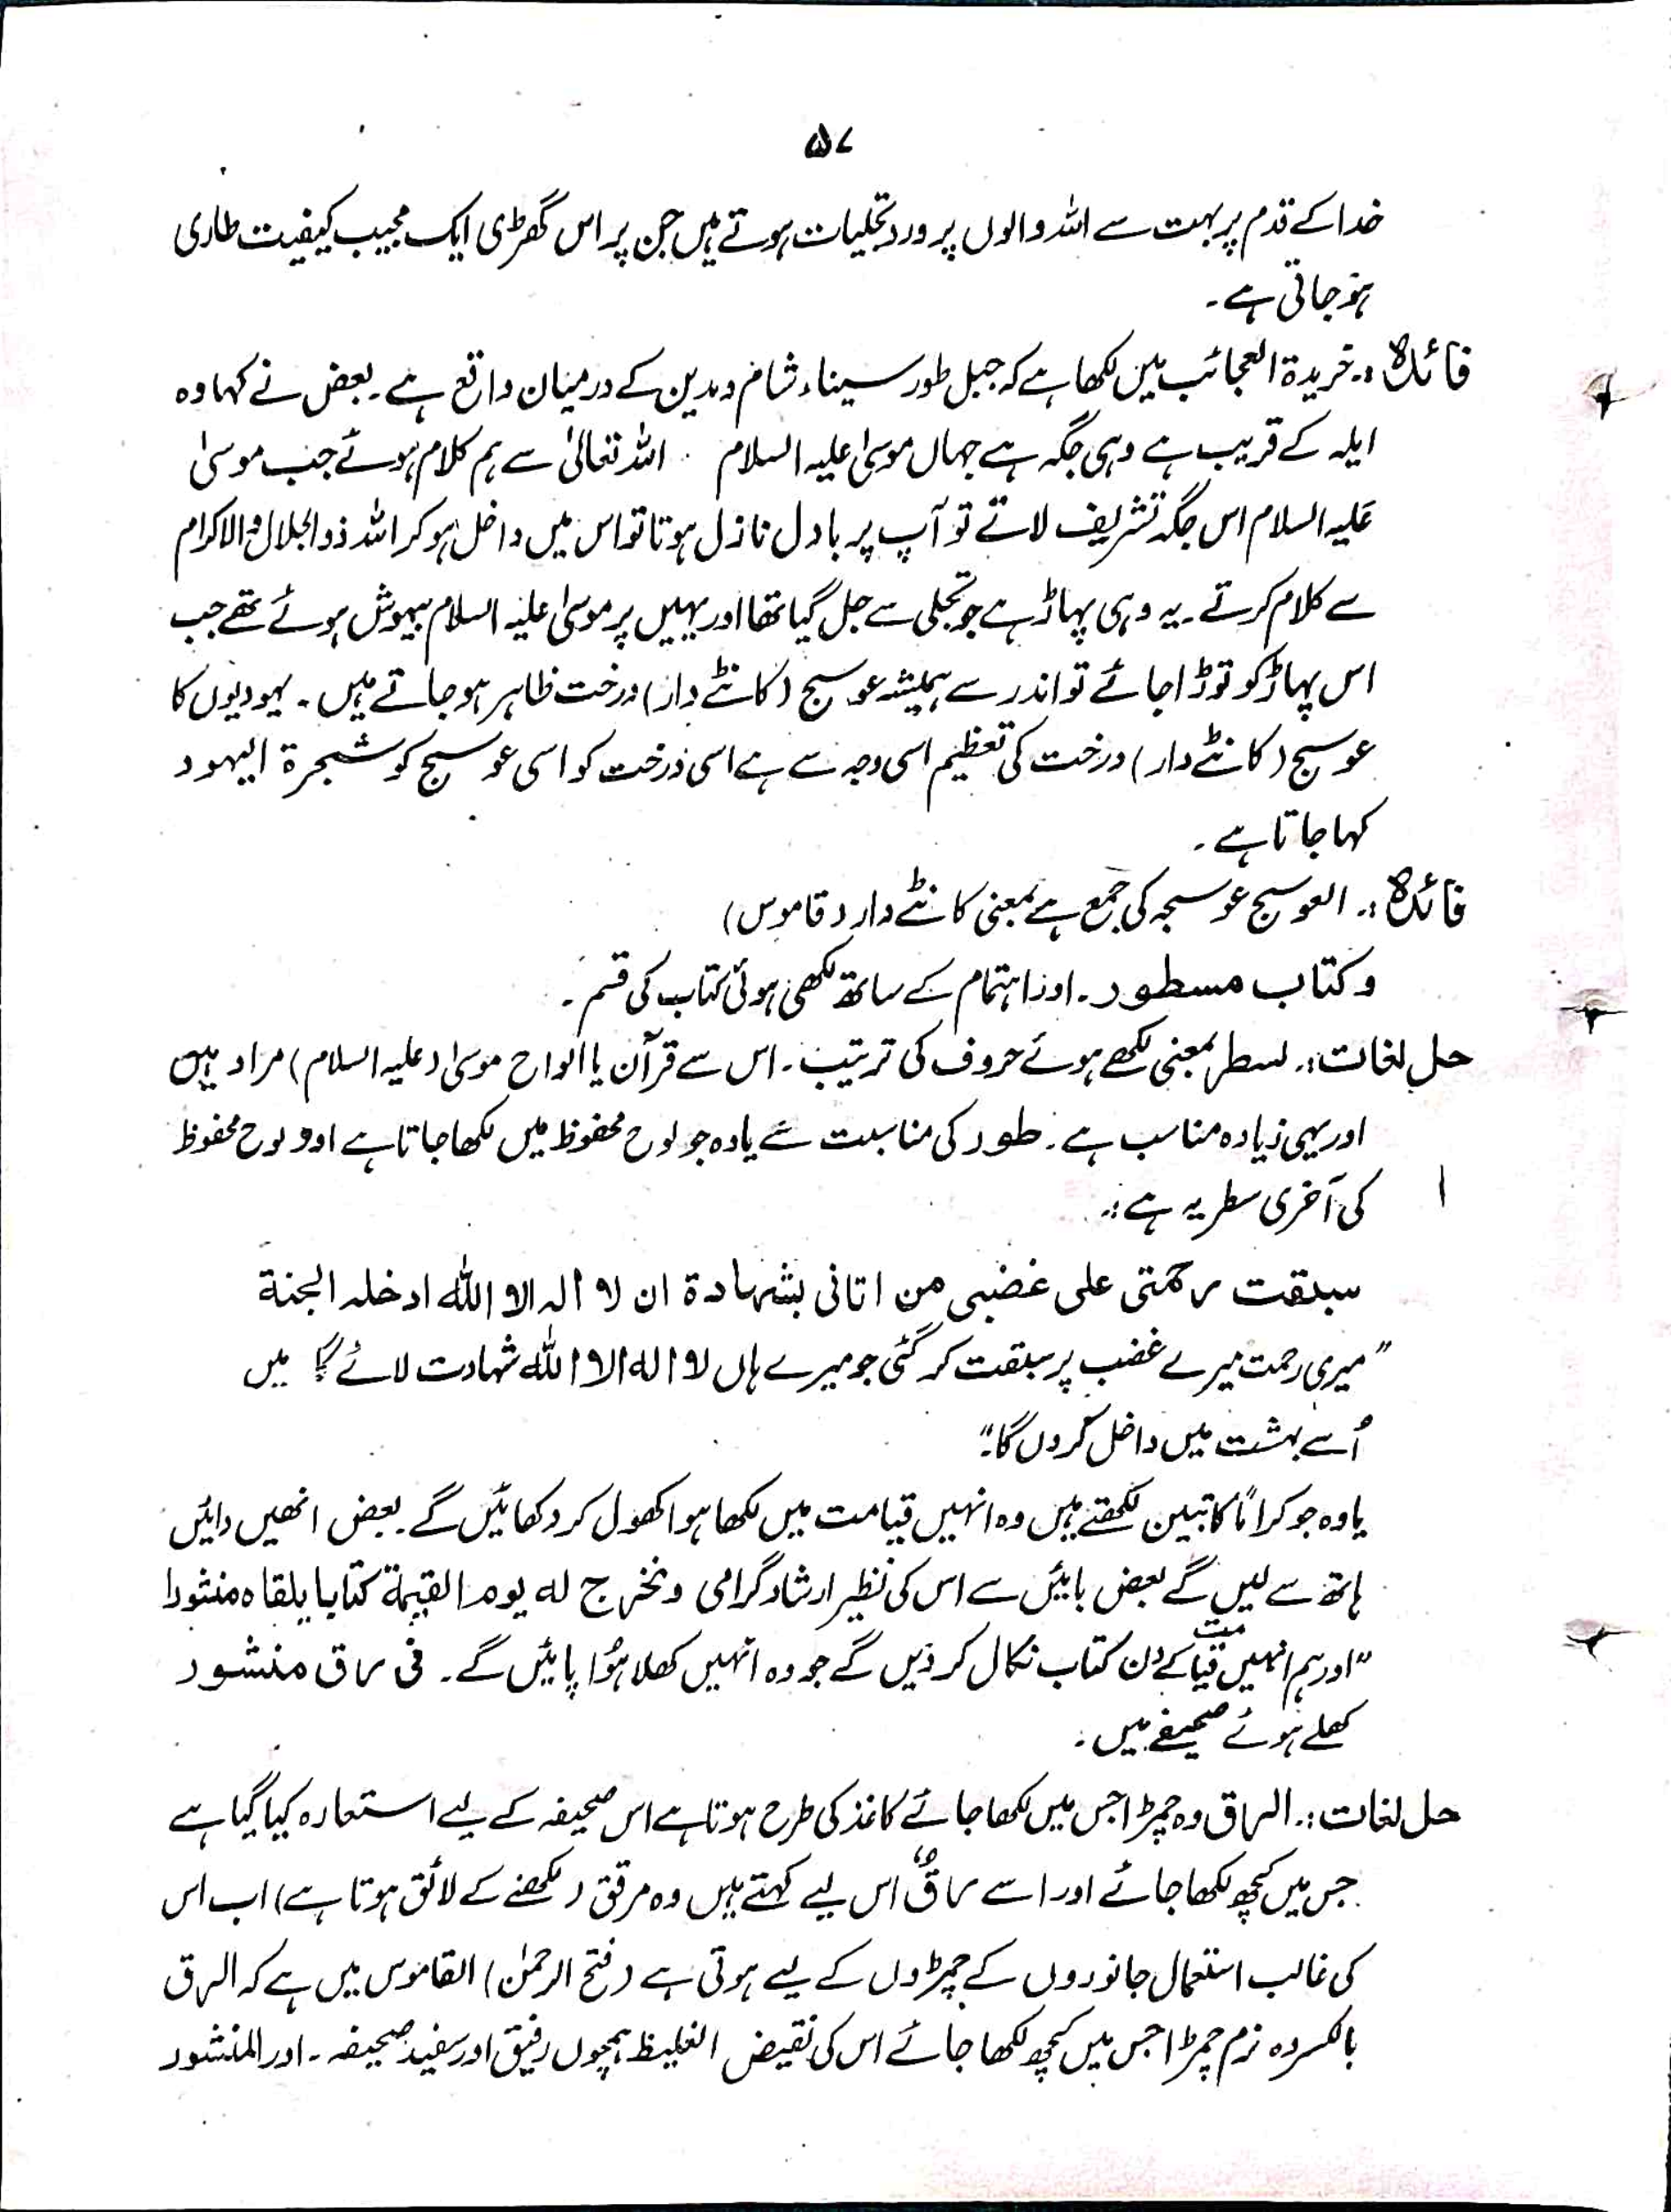 ۵۷
خدا کے قدم پر بہت سے اللہ والوں پر ورد تجلیات ہوتے ہیں جن پر اس گھڑی ایک عجیب کیفیت طاری
ہو جاتی ہے۔
فائدہ :۔ خریدۃ العجائب میں لکھا ہے کہ جبل طور سیناء شام و مدین کے درمیان واقع ہے۔ بعض نے کہا وہ
ایلہ کے قریب ہے وہی جگہ ہے جہاں موسیٰ علیہ السلام اللہ تعالیٰ سے ہم کلام ہوئے جب موسیٰ
علیہ السلام اس جگہ تشریف لاتے تو آپ پر بادل نازل ہوتا تو اس میں داخل ہو کر اللہ ذوالجلال والاکرام
سے کلام کرتے۔ یہ وہی پہاڑ ہے جو تجلی سے جل گیا تھا اور یہیں پر موسیٰ علیہ السلام بیہوش ہوئے تھے جب
اس پہاڑ کو توڑا جائے تو اندر سے ہمیشہ عوسج (کانٹے دار) درخت ظاہر ہو جاتے ہیں۔ یہودیوں کا
عوسج (کانٹے دار) درخت کی تعظیم اسی وجہ سے ہے اسی درخت کو اسی عوسج کو شجرۃ الیہود
کہا جاتا ہے۔
فائدہ :۔ العوسج عوسجہ کی جمع ہے بمعنی کانٹے دار (قاموس)
وکتاب مسطور۔ اور اہتمام کے ساتھ لکھی ہوئی کتاب کی قسم۔
حل لغات :۔ سطر بمعنی لکھے ہوئے حروف کی ترتیب۔ اس سے قرآن یا الواح موسیٰ (علیہ السلام) مراد ہیں
اور یہی زیادہ مناسب ہے۔ طور کی مناسبت سے یا وہ جو لوح محفوظ میں لکھا جاتا ہے اور لوح محفوظ
کی آخری سطر یہ ہے :۔
سبقت رحمتی علی غضبی من اتانی بشہادۃ ان لا الہ الا اللہ ادخلہ الجنۃ
"میری رحمت میرے غضب پر سبقت کر گئی جو میرے ہاں لا الہ الا اللہ شہادت لائے گا میں
اُسے بہشت میں داخل کروں گا۔"
یا وہ جو کراماً کاتبین لکھتے ہیں وہ انہیں قیامت میں لکھا ہوا کھول کر دکھائیں گے۔ بعض انھیں دائیں
ہاتھ سے لیں گے بعض بائیں سے اس کی نظیر ارشاد گرامی ونخرج لہ یوم القیمۃ کتابا یلقاہ منشورا
"اور ہم انہیں قیامت کے دن کتاب نکال کر دیں گے جو وہ انہیں کھلا ہُوا پائیں گے۔ فی رق منشور
کھلے ہوئے صحیفے میں۔
حل لغات :۔ الرق وہ چمڑا جس میں لکھا جائے کاغذ کی طرح ہوتا ہے اس صحیفہ کے لیے استعارہ کیا گیا ہے
جس میں کچھ لکھا جائے اور اسے رق اس لیے کہتے ہیں وہ مرقق (لکھنے کے لائق ہوتا ہے) اب اس
کی غالب استعمال جانوروں کے چمڑوں کے لیے ہوتی ہے (فتح الرحمٰن) القاموس میں ہے کہ الرق
بالکسر وہ نرم چمڑا جس میں کچھ لکھا جائے اس کی نقیض الغلیظ ہمچوں رفیق اور سفید صحیفہ۔ اور المنشور